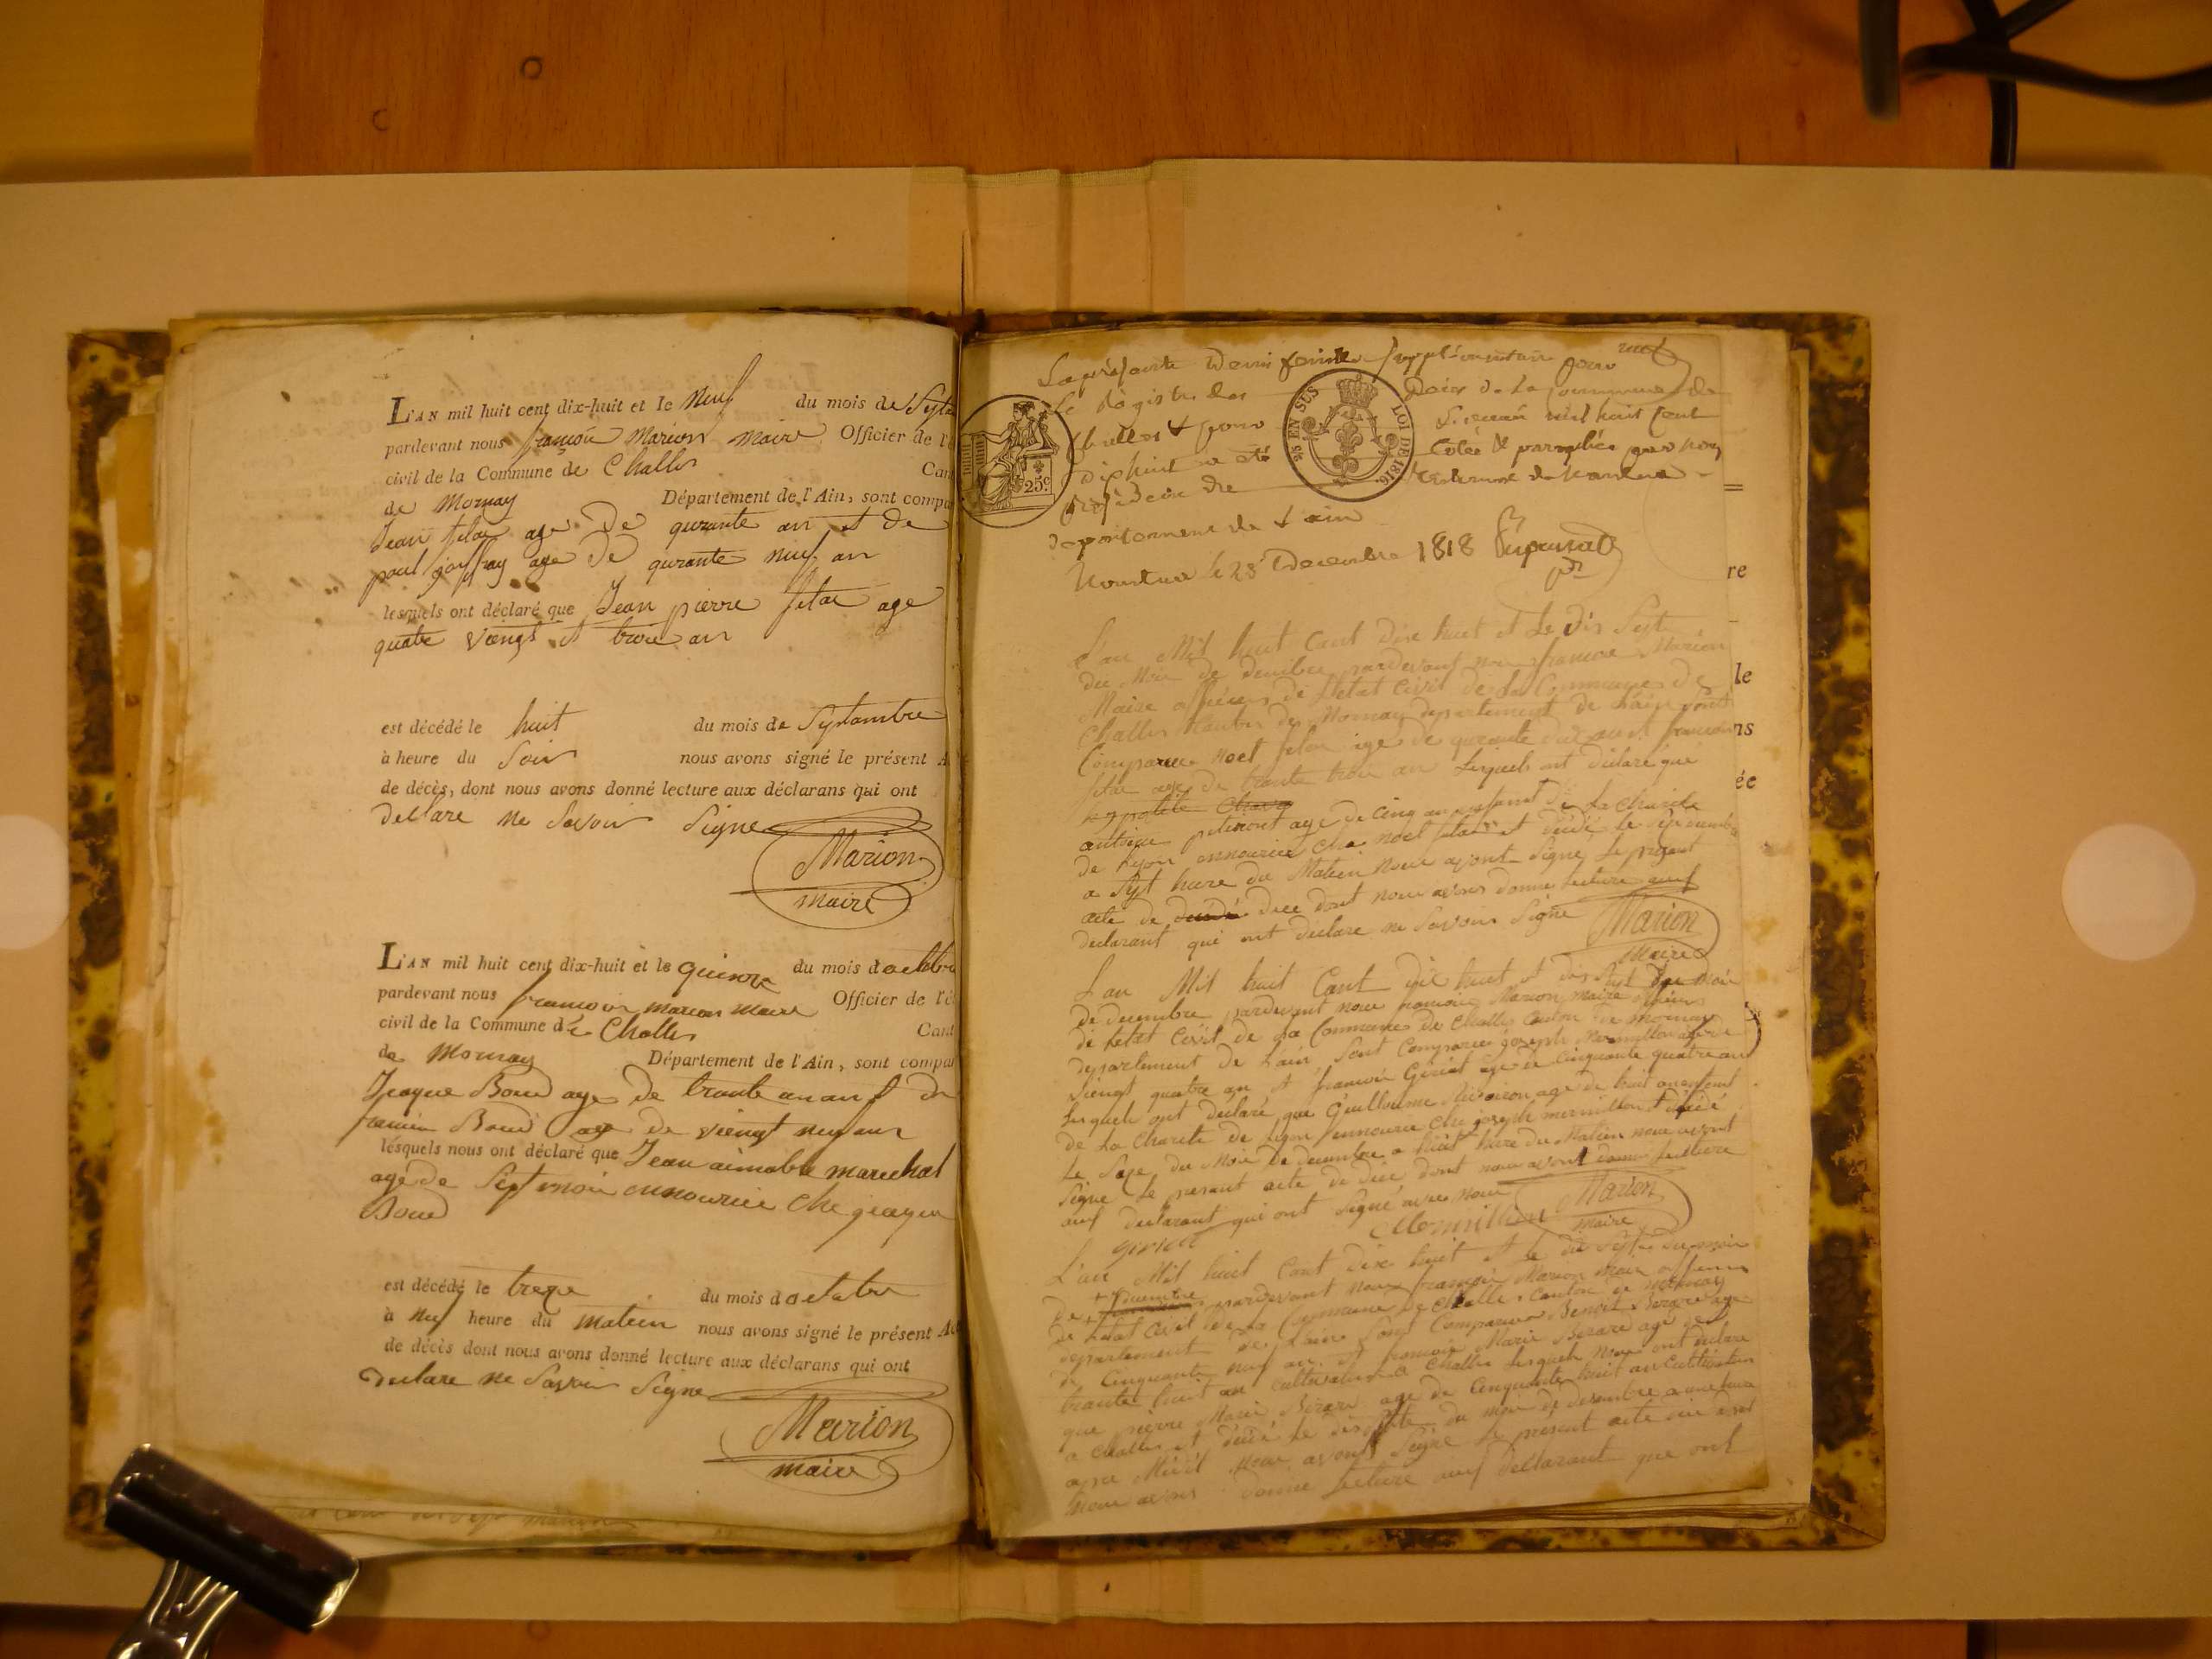 L'AN mil huit cent dix-huit et le neuf du mois de Septa
pardevant nous françois Marion maire Officier de l'é
civil de la Commune de Challes Can
de Mornay Département de l'Ain, sont compa
Jean felae age De quarante an et de
paul goyffray age De quarante neuf an
lesquels ont déclaré que Jean pierre felae age
quatre viengt et troie an
est décédé le huit du mois de Septambre
à heure du Soir nous avons signé le présent A
de décès, dont nous avons donné lecture aux déclarans qui ont
declare ne Savoir Signe
Marion
maire
L'AN mil huit cent dix-huit et le quinze du mois doctobre
pardevant nous francois marion maire Officier de l'é
civil de la Commune de Challes Cant
de Mornay Département de l'Ain, sont compar
Jacque Boud age De trante an et De
Boud age de viengt neuf an
lesquels nous ont déclaré que Jean aimable marechal
age de Sept moi ennourice Che
Boud
est décédé le treze du mois doctobre
à neuf heure du matien nous avons signé le présent Ac
de décès dont nous avons donné lecture aux déclarans qui ont
declare ne Savoir Signe
Marion
maire
La présente Demi feuille supplémentaire pour
le Registre des Décès de la commune de
Challes mil huit cent
dix huit a été Cotée & paraphée par nous
25c
5/8 EN SUS LOI DE 1816
département de l'ain
le 23 Decembre 1818
re
L'an Mil huit Cant dixe huit et Le Dis Sept
du Moi de decembre pardevant nou francoie Marion
Maire officiers de Letat Civil de La Commune de
le
Challes Canton de Mornay departement de Lain Sont
Comparue Noel felae age de quarante an et francoie
ns
felae age de trante troie an Lesquels ont déclaré que
ée
antoine age de Cinq an enfant de La Charite
de Lyon ennourice Che noel felae et décédé le
a Sept heure du Matien Nous avont Signe Le present
acte de dece dont nous avons donne Lecture auf
declarant qui ont déclare ne Savoir Signe Marion
Maire
L'an Mil huit Cant dix huit et dis Sept du moi
de decembre pardevant nous francoie Marion maire officier
de Letat Civil de La Commune de Challes Canton de mornay
departement de Lain, Sont Comparue joseph Mermillon age de
Viengt quatre an et francois Giriat age de Cinquante quatre an
Lesquels ont declaré que Guilloume age de huit an enfant
de La Charite de Lyon ennourice Che joseph mermillon et décédé
Le Seze du Moie De decembre a huit heure du Matien nous avont
Signe Le present acte de dece dont nous avont donne Lecture
auf declarant qui ont Signé avec nous Marion
giriat Mermillion maire
L'an Mil huit Cant Dixe huit et le dis Sept du moi
de decembre pardevant nous françois Marion Maire officier
de Letat Civil de La Commune de Challes Canton de Mornay
departement de Lain Sont Comparue Benoit Berard age
de Cinquante neuf an et francois Marie Berard age de
trante huit an Cultivateur a Challes Lesquels nous ont declare
que pierre Marie Berard age de Cinquante huit an Cultivateur
a Challes et décédé le dis Sept du moi de decembre a une heure
apre Midi nous avont Signe Le present acte
nous avons donne Lecture auf declarant que ont